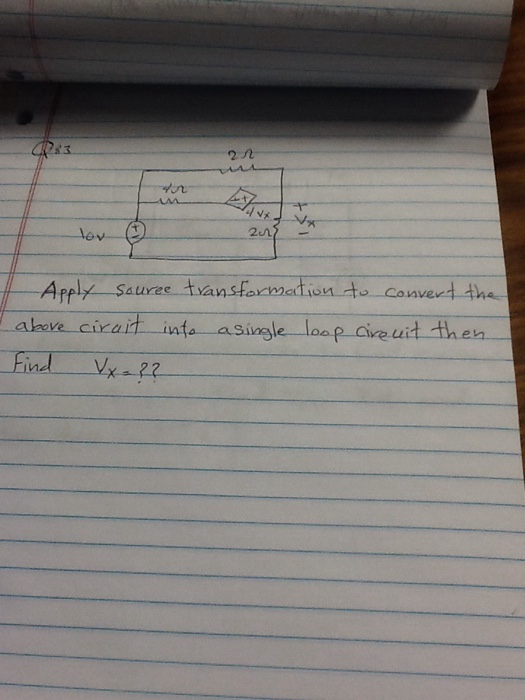 Q#3
2Ω
4Ω
- +
4Vx
+
Vx
-
2Ω
10V
+
-
Apply source transformation to convert the
above ciruit into a single loop circuit then
Find Vx = ??